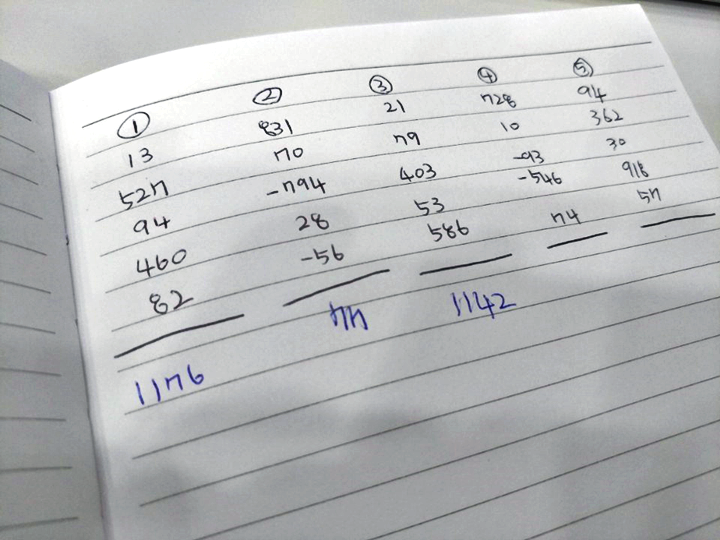 ① ② ③ ④ ⑤
13 831 21 728 94
527 70 79 10 362
94 -794 403 -93 30
460 28 53 -546 918
82 -56 586 74 57
1176 77 1142